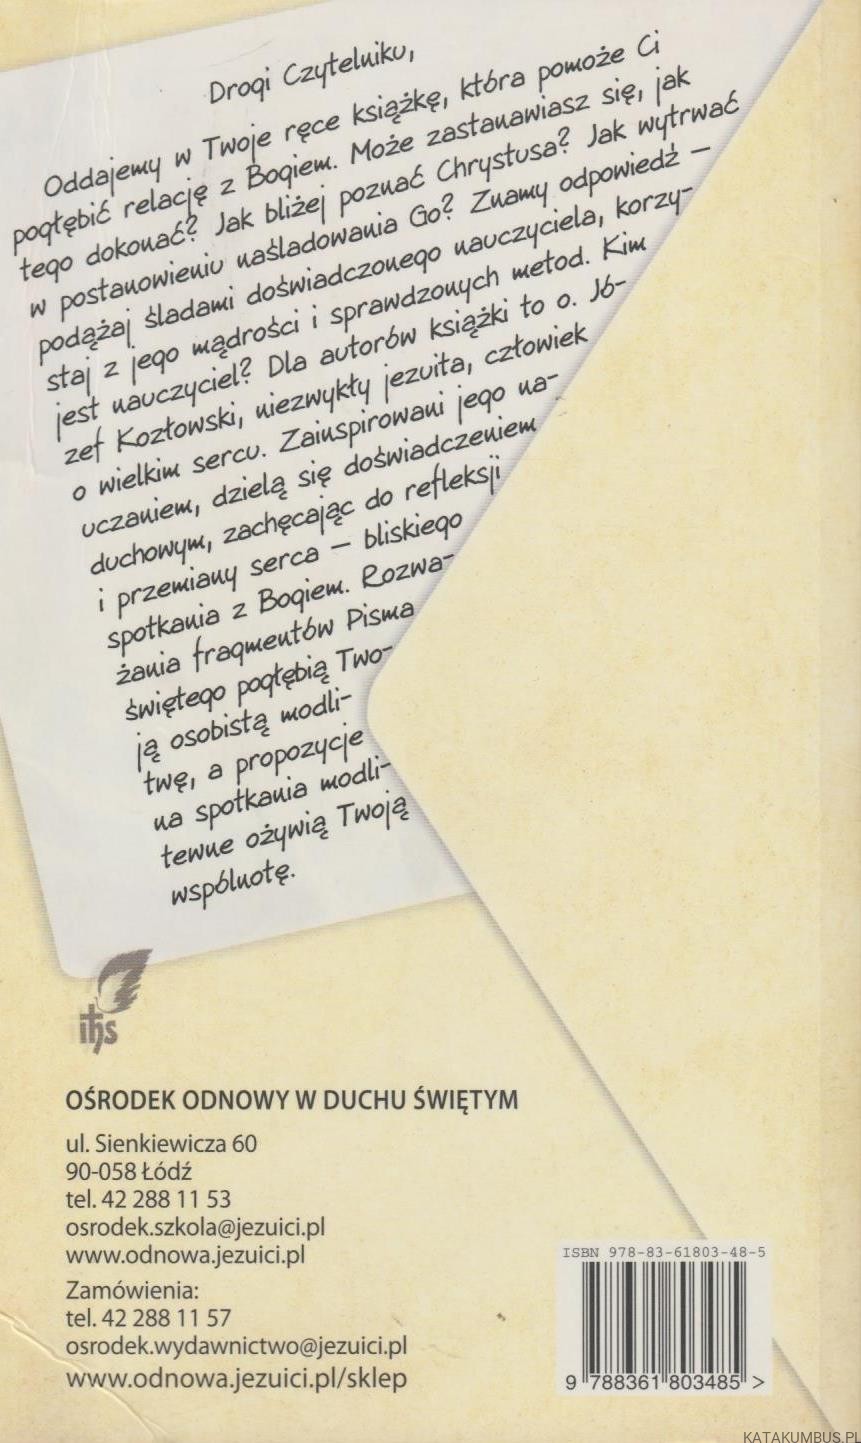 Drogi Czytelniku,
Oddajemy w Twoje ręce książkę, która pomoże Ci
pogłębić relację z Bogiem. Może zastanawiasz się, jak
tego dokonać? Jak bliżej poznać Chrystusa? Jak wytrwać
w postanowieniu naśladowania Go? Znamy odpowiedź –
podążaj śladami doświadczonego nauczyciela, korzy-
staj z jego mądrości i sprawdzonych metod. Kim
jest nauczyciel? Dla autorów książki to o. Jó-
zef Kozłowski, niezwykły jezuita, człowiek
o wielkim sercu. Zainspirowani jego na-
uczaniem, dzielą się doświadczeniem
duchowym, zachęcając do refleksji
i przemiany serca – bliskiego
spotkania z Bogiem. Rozwa-
żania fragmentów Pisma
świętego pogłębią Two-
ją osobistą modli-
twę, a propozycje
na spotkania modli-
tewne ożywią Twoją
wspólnotę.
ihs
OŚRODEK ODNOWY W DUCHU ŚWIĘTYM
ul. Sienkiewicza 60
90-058 Łódź
tel. 42 288 11 53
osrodek.szkola@jezuici.pl
www.odnowa.jezuici.pl
Zamówienia:
tel. 42 288 11 57
osrodek.wydawnictwo@jezuici.pl
www.odnowa.jezuici.pl/sklep
ISBN 978-83-61803-48-5
9 788361 803485 >
KATAKUMBUS.PL